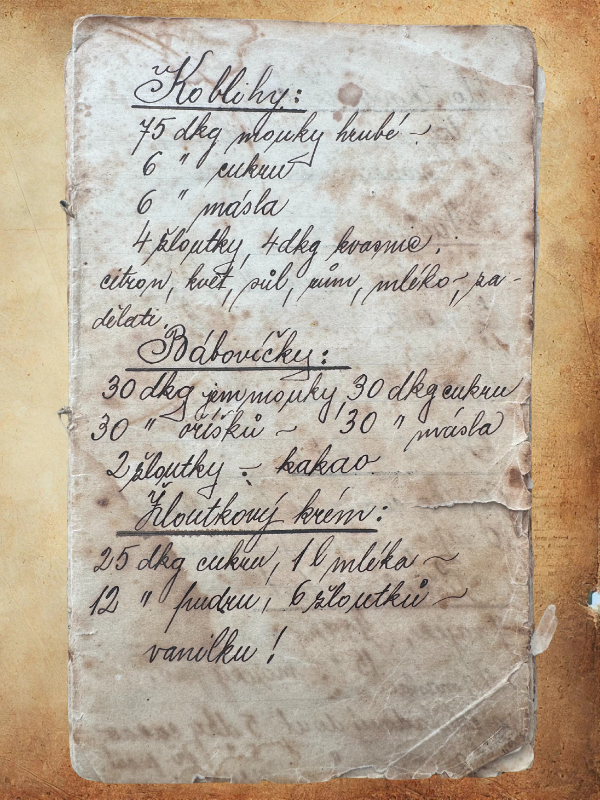 Koblihy:
75 dkg mouky hrubé -
6 " cukru
6 " másla
4 žloutky, 4 dkg kvasnic.
citron, květ, sůl, rum, mléko -, za-
dělati.
Bábovičky:
30 dkg jem mouky, 30 dkg cukru
30 " oříšků - 30 " másla
2 žloutky - kakao.
Žloutkový krém:
25 dkg cukru, 1 l mléka -
12 " pudru, 6 žloutků -
vanilku!